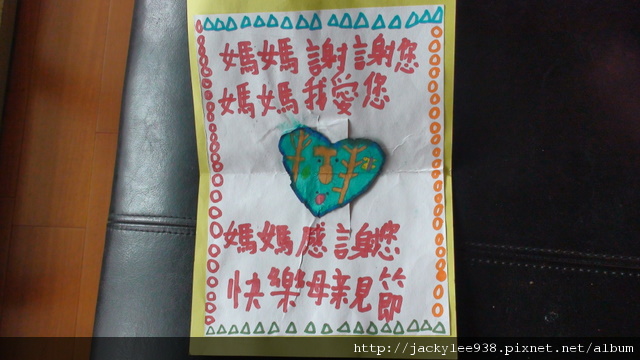 媽媽謝謝您
媽媽我愛您
媽媽感謝您
快樂母親節
http://jackylee938.pixnet.net/album